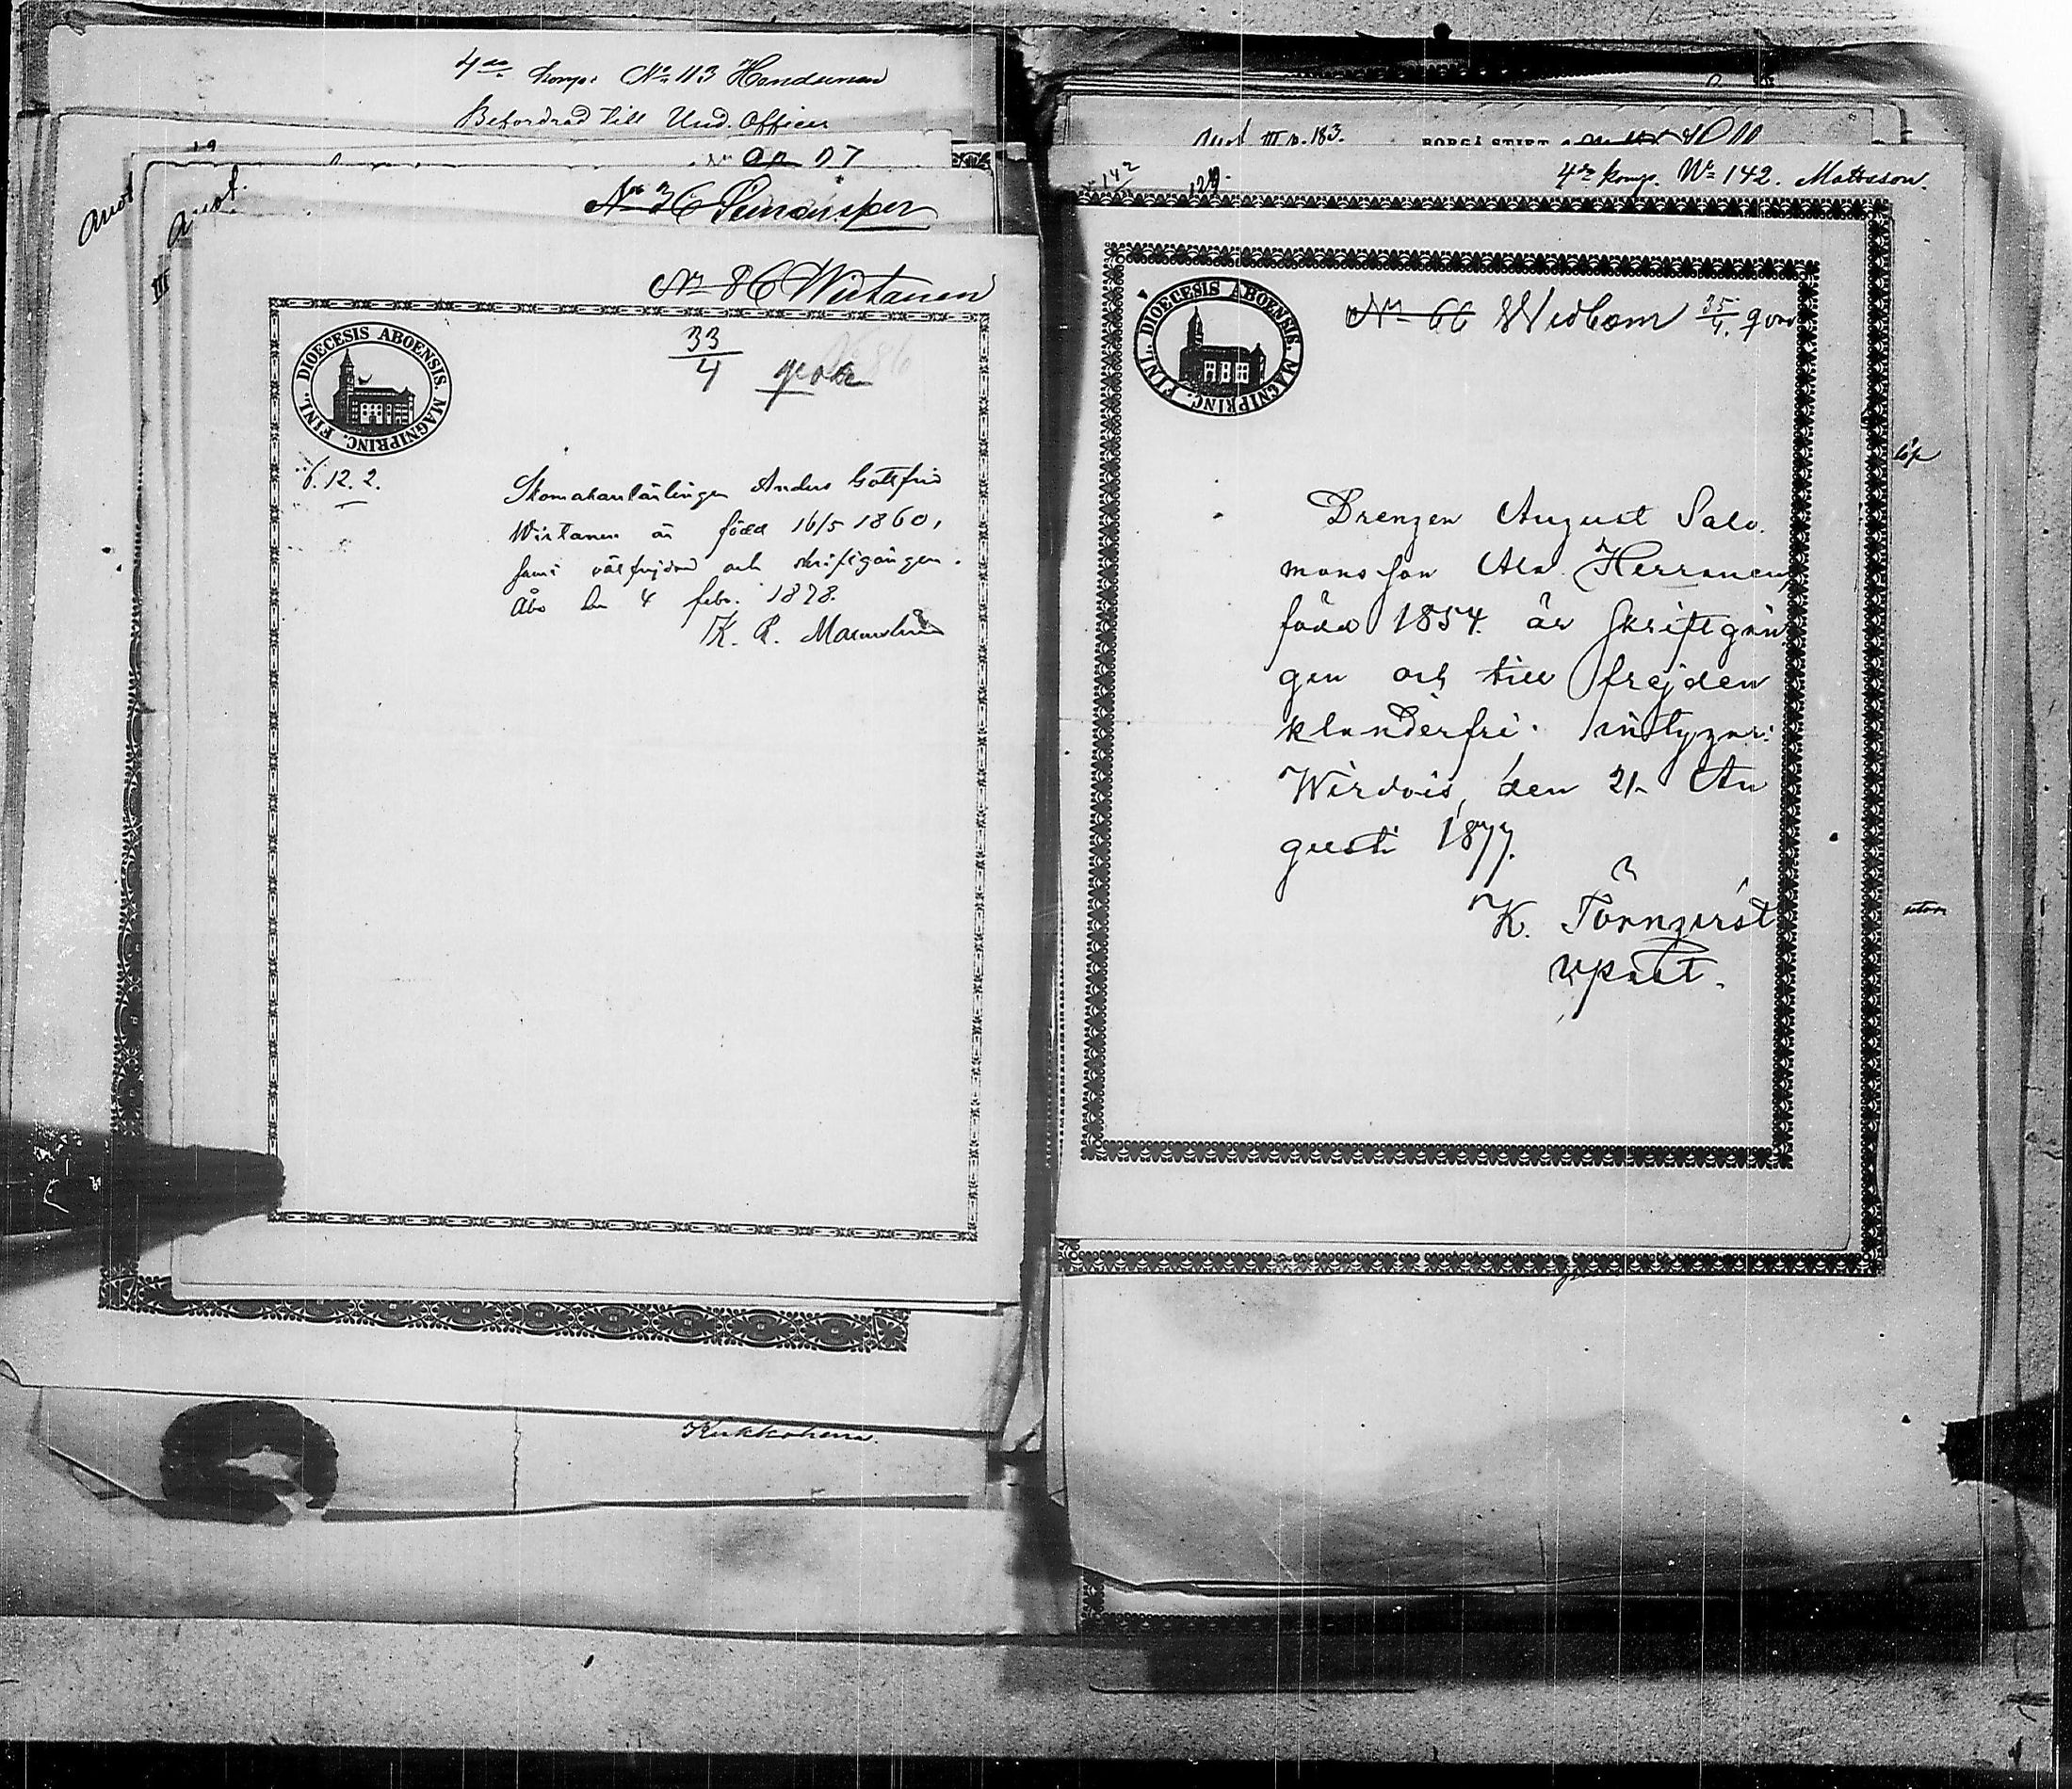 4de komp: No 113
Befordrad till Und. Officer
Anot
Anot.
III
No 86 Wirtanen
33
4
DIOECESIS ABOENSIS. MAGNIPRINC. FINL.
6.12.2.
Skomakarlärlingen Anders Gottfrid
Wirtanen är född 16/5 1860,
samt välfrejdad och skriftgången.
Åbo den 4 febr. 1878.
K. R.
Kukkohena.
Anot III p. 183.
BORGÅ STIFT
142
129.
4de komp. No 142. Mattsson.
No 66 Widbom 35
4.
DIOECESIS ABOENSIS. MAGNIPRINC. FINL.
Drengen August Salo-
monsson Ala Herranen,
född 1854. är skriftgån
gen och till frejden
klanderfri. intygar:
Wirdois, den 21 Au
gusti 1877.
K. Törnqvist
v. past.